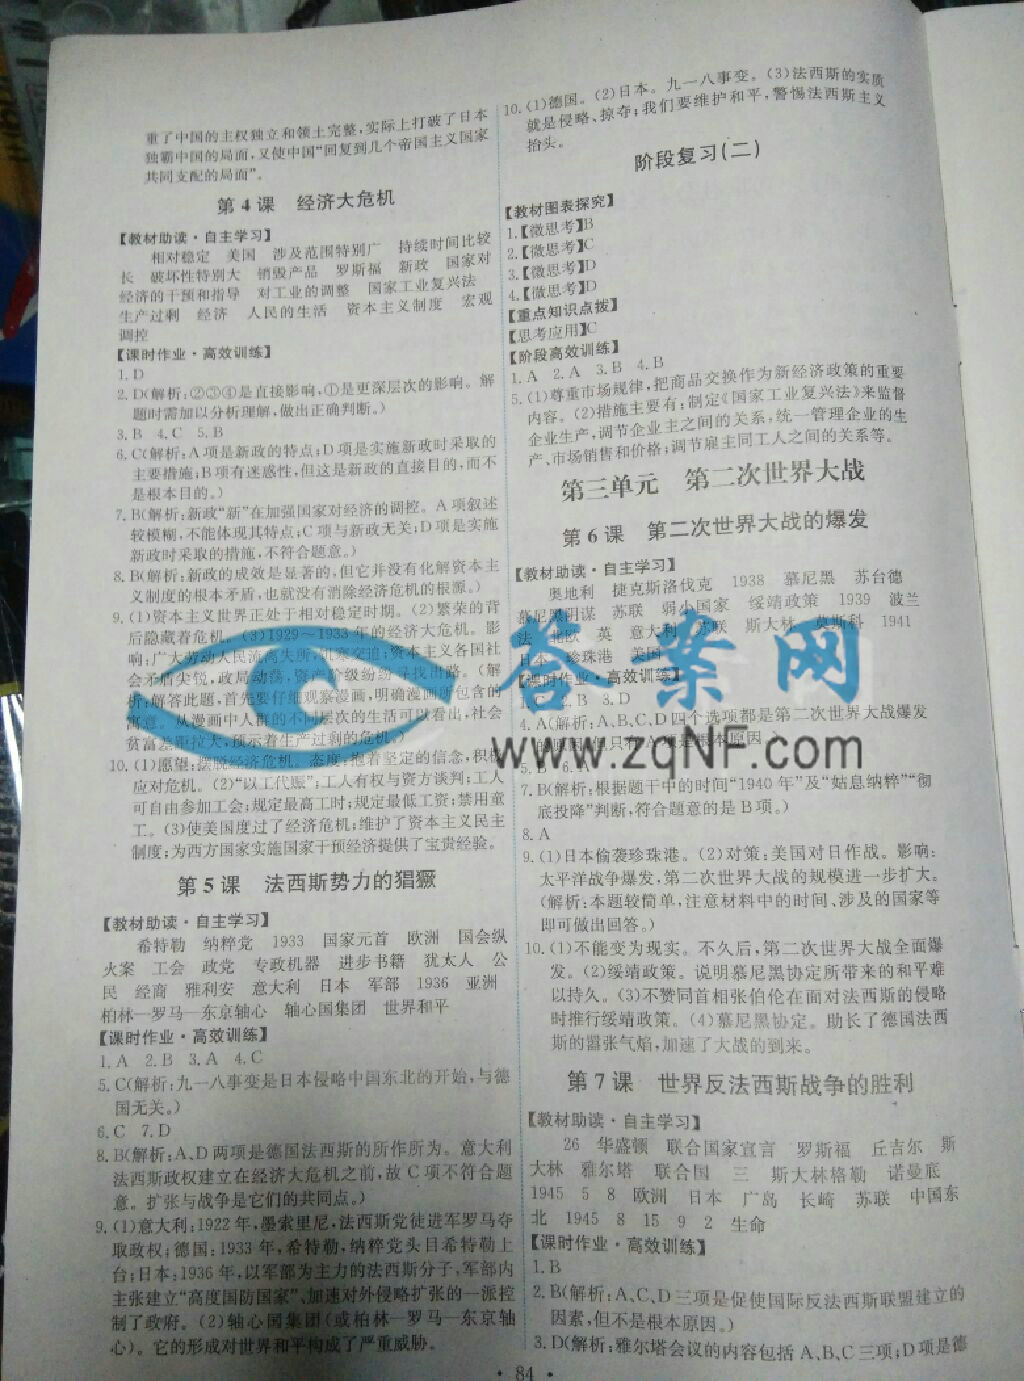 重了中国的主权独立和领土完整,实际上打破了日本
独霸中国的局面,又使中国“回复到几个帝国主义国家
共同支配的局面”。
第4课 经济大危机
【教材助读·自主学习】
相对稳定 美国 涉及范围特别广 持续时间比较
长 破坏性特别大 销毁产品 罗斯福 新政 国家对
经济的干预和指导 对工业的调整 国家工业复兴法
生产过剩 经济 人民的生活 资本主义制度 宏观
调控
【课时作业·高效训练】
1. D
2. D(解析:②③④是直接影响,①是更深层次的影响。解
题时需加以分析理解,做出正确判断。)
3. B 4. C 5. B
6. C(解析:A项是新政的特点;D项是实施新政时采取的
主要措施;B项有迷惑性,但这是新政的直接目的,而不
是根本目的。)
7. B(解析:新政“新”在加强国家对经济的调控。A项叙述
较模糊,不能体现其特点;C项与新政无关;D项是实施
新政时采取的措施,不符合题意。)
8. B(解析:新政的成效是显著的,但它并没有化解资本主
义制度的根本矛盾,也就没有消除经济危机的根源。)
9. (1)资本主义世界正处于相对稳定时期。(2)繁荣的背
后隐藏着危机。(3)1929～1933年的经济大危机。影
响:广大劳动人民流离失所,饥寒交迫;资本主义各国社
会矛盾尖锐,政局动荡,资产阶级纷纷寻找出路。(解
析:解答此题,首先要仔细观察漫画,明确漫画所包含的
寓意。从漫画中人群的不同层次的生活可以看出,社会
贫富差距拉大,预示着生产过剩的危机。)
10. (1)愿望:摆脱经济危机。态度:抱着坚定的信念,积极
应对危机。(2)“以工代赈”;工人有权与资方谈判;工人
可自由参加工会;规定最高工时;规定最低工资;禁用童
工。(3)使美国度过了经济危机;维护了资本主义民主
制度;为西方国家实施国家干预经济提供了宝贵经验。
第5课 法西斯势力的猖獗
【教材助读·自主学习】
希特勒 纳粹党 1933 国家元首 欧洲 国会纵
火案 工会 政党 专政机器 进步书籍 犹太人 公
民 经商 雅利安 意大利 日本 军部 1936 亚洲
柏林—罗马—东京轴心 轴心国集团 世界和平
【课时作业·高效训练】
1. A 2. B 3. A 4. C
5. C(解析:九一八事变是日本侵略中国东北的开始,与德
国无关。)
6. C 7. D
8. B(解析:A、D两项是德国法西斯的所作所为。意大利
法西斯政权建立在经济大危机之前,故C项不符合题
意。扩张与战争是它们的共同点。)
9. (1)意大利:1922年,墨索里尼,法西斯党徒进军罗马夺
取政权;德国:1933年,希特勒,纳粹党头目希特勒上
台;日本:1936年,以军部为主力的法西斯分子,军部内
主张建立“高度国防国家”、加速对外侵略扩张的一派控
制了政府。(2)轴心国集团(或柏林—罗马—东京轴
心)。它的形成对世界和平构成了严重威胁。
10. (1)德国。(2)日本。九一八事变。(3)法西斯的实质
就是侵略、掠夺;我们要维护和平,警惕法西斯主义
抬头。
阶段复习(二)
【教材图表探究】
1.【微思考】B
2.【微思考】C
3.【微思考】D
4.【微思考】D
【重点知识点拨】
【思考应用】C
【阶段高效训练】
1. A 2. A 3. B 4. B
5. (1)尊重市场规律,把商品交换作为新经济政策的重要
内容。(2)措施主要有:制定《国家工业复兴法》来监督
企业生产,调节企业主之间的关系,统一管理企业的生
产、市场销售和价格;调节雇主同工人之间的关系等。
第三单元 第二次世界大战
第6课 第二次世界大战的爆发
【教材助读·自主学习】
奥地利 捷克斯洛伐克 1938 慕尼黑 苏台德
慕尼黑阴谋 苏联 弱小国家 绥靖政策 1939 波兰
法 北欧 英 意大利 苏联 斯大林 莫斯科 1941
日本 珍珠港 美国
【课时作业·高效训练】
2. B 3. D
4. A(解析:A、B、C、D四个选项都是第二次世界大战爆发
的原因,但只有A项是根本原因。)
5. B 6. A
7. B(解析:根据题干中的时间“1940年”及“姑息纳粹”“彻
底投降”判断,符合题意的是B项。)
8. A
9. (1)日本偷袭珍珠港。(2)对策:美国对日作战。影响:
太平洋战争爆发,第二次世界大战的规模进一步扩大。
(解析:本题较简单,注意材料中的时间、涉及的国家等
即可做出回答。)
10. (1)不能变为现实。不久后,第二次世界大战全面爆
发。(2)绥靖政策。说明慕尼黑协定所带来的和平难
以持久。(3)不赞同首相张伯伦在面对法西斯的侵略
时推行绥靖政策。(4)慕尼黑协定。助长了德国法西
斯的嚣张气焰,加速了大战的到来。
第7课 世界反法西斯战争的胜利
【教材助读·自主学习】
26 华盛顿 联合国家宣言 罗斯福 丘吉尔 斯
大林 雅尔塔 联合国 三 斯大林格勒 诺曼底
1945 5 8 欧洲 日本 广岛 长崎 苏联 中国东
北 1945 8 15 9 2 生命
【课时作业·高效训练】
1. B
2. B(解析:A、C、D三项是促使国际反法西斯联盟建立的
因素,但不是根本原因。)
3. D(解析:雅尔塔会议的内容包括A、B、C三项;D项是德
· 84 ·
答案网
www.zqNF.com